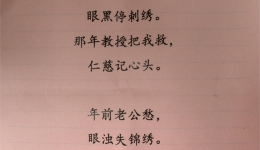 眼黑停刺绣。
那年教授把我救，
仁慈记心头。
年前老公愁，
眼浊失锦绣。